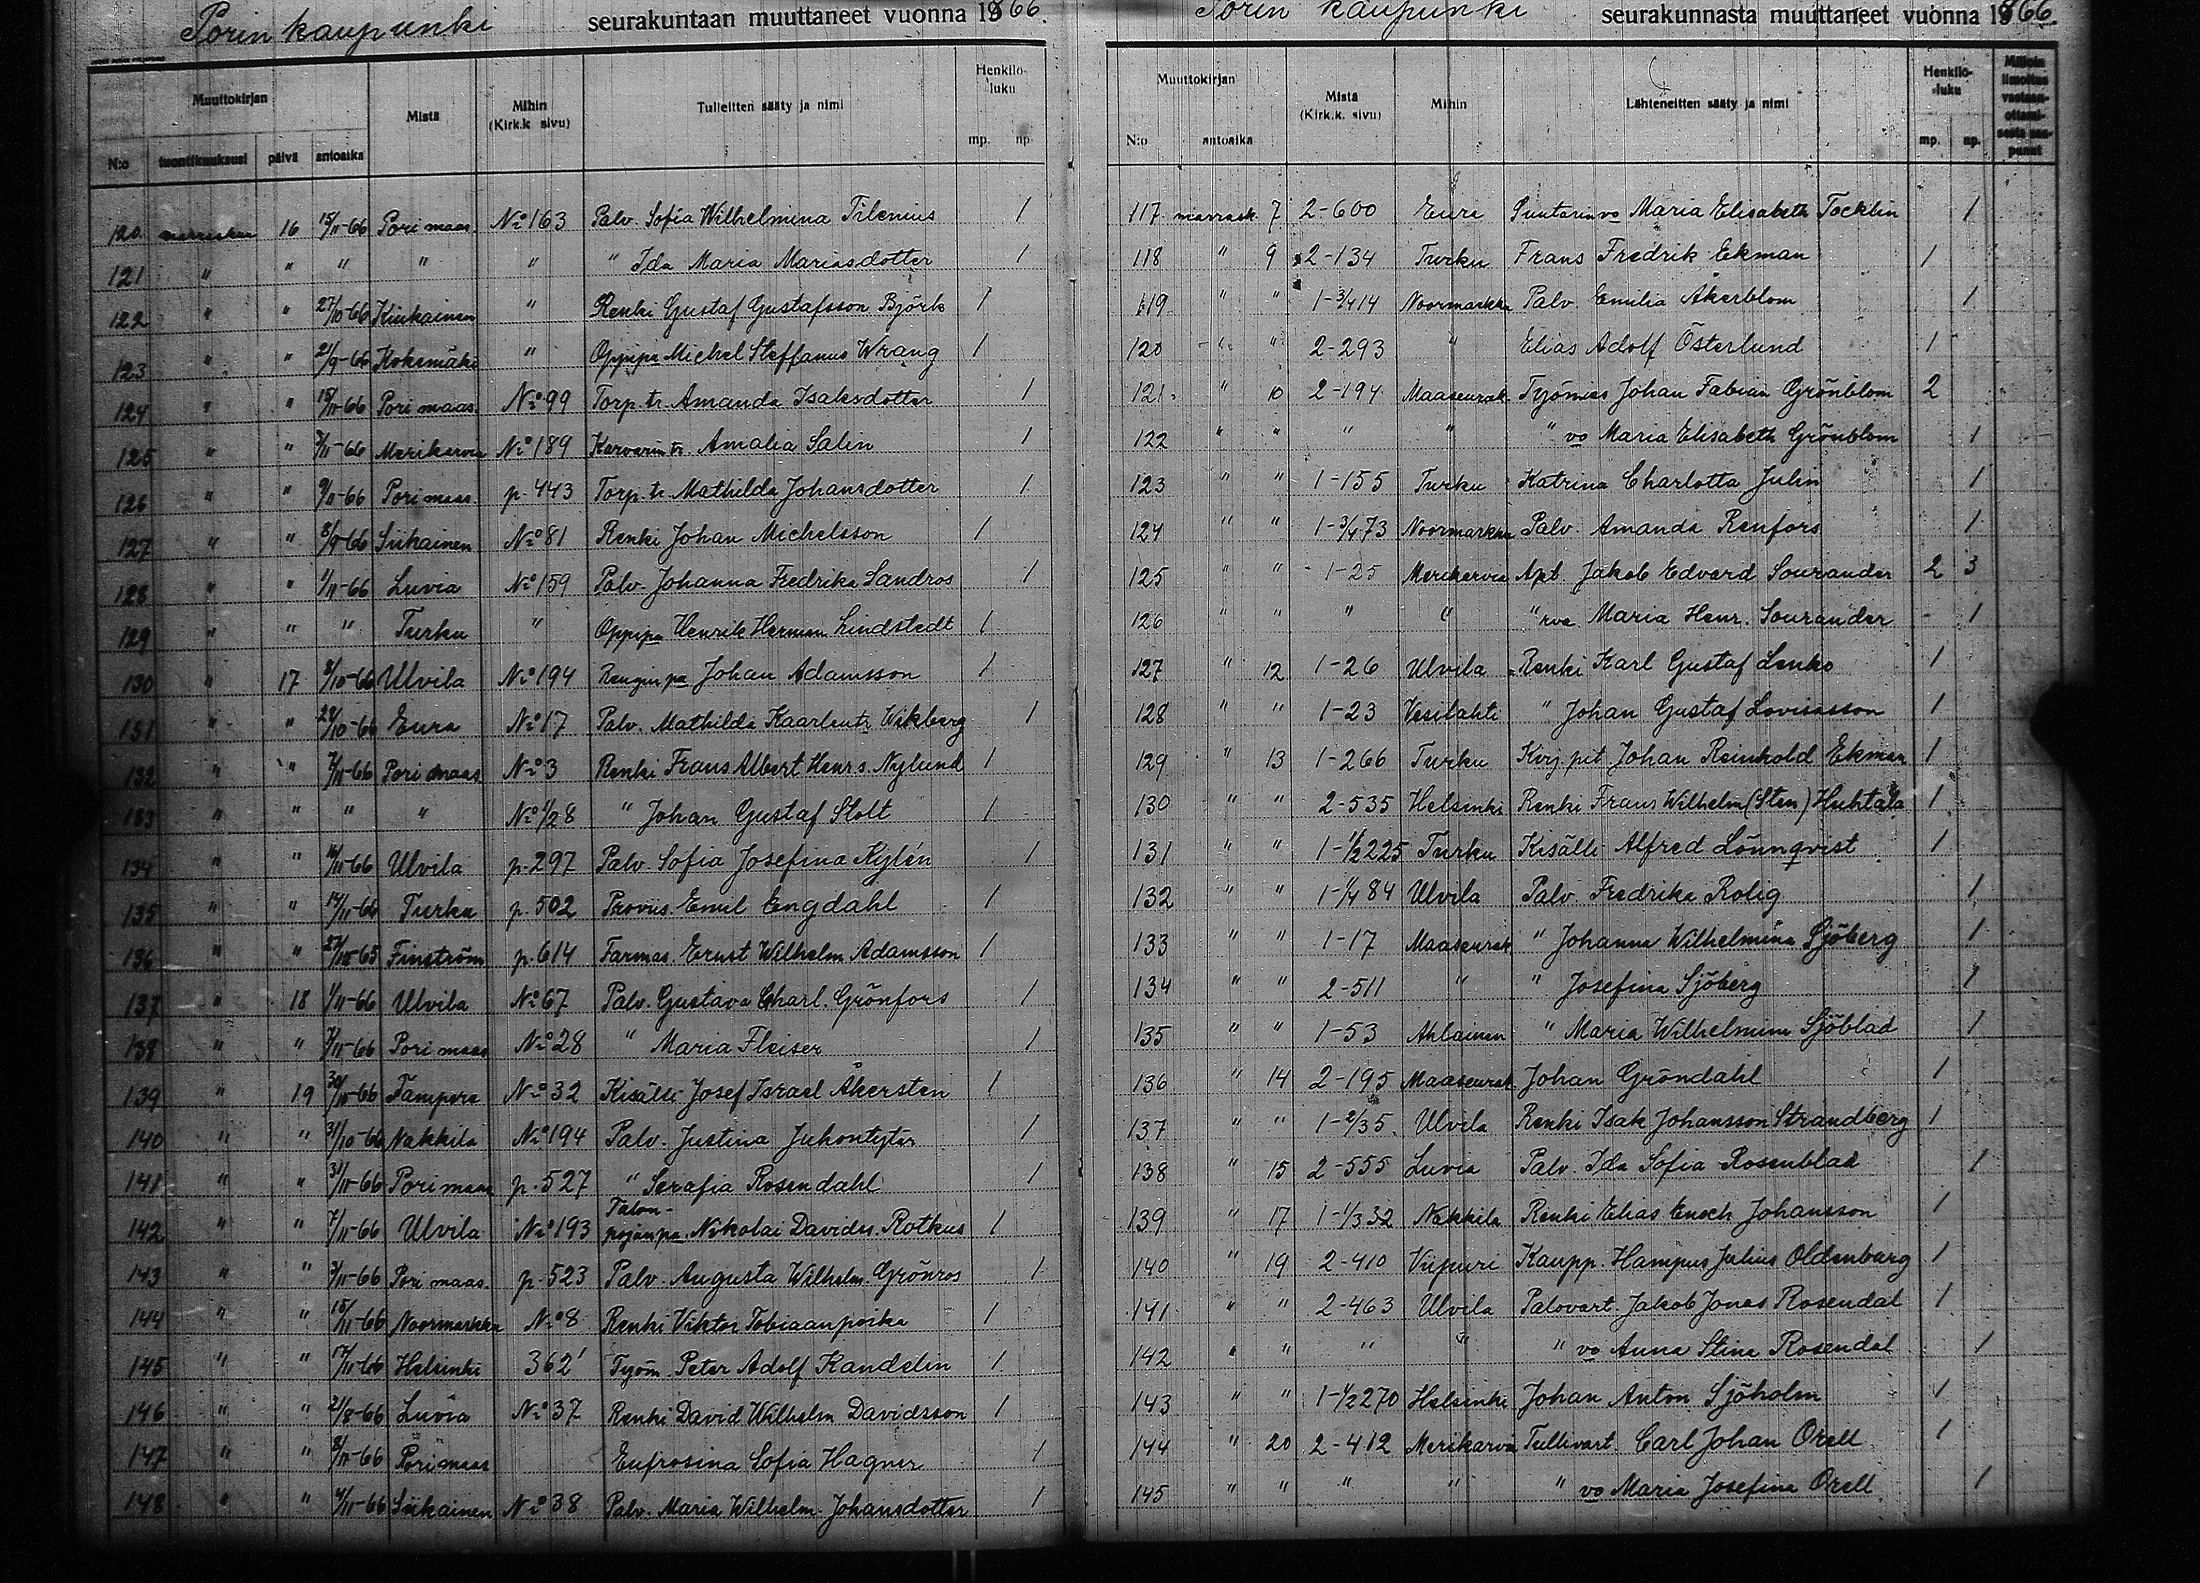 Porin kaupunki seurakuntaan muuttaneet vuonna 1866.
Muuttokirjan Mistä Mihin (Kirk.k. sivu) Tulleitten sääty ja nimi Henkilö-luku
N:o tuontikuukausi päivä antoaika mp. np.
120 marraskuu 16 15/11-66 Pori maas. No 163 Palv. Sofia Wilhelmina Tilenius 1
121 " " " " " " Ida Maria Mariasdotter 1
122 " " 27/10-66 Kiukainen " Renki Gustaf Gustafsson Björk 1
123 " " 21/9-66 Kokemäki " Oppipa Michel Steffanus Wrang 1
124 " " 15/11-66 Pori maas. No 99 Torp. tr. Amanda Isaksdotter 1
125 " " /11-66 Merikarvia No 189 Karvarin tr. Amalia Salin 1
126 " " 9/11-66 Pori maas. p. 443 Torp. tr. Mathilda Johansdotter 1
127 " " 8/9-66 Siikainen No 81 Renki Johan Michelsson 1
128 " " 1/11-66 Luvia No 159 Palv. Johanna Fredrika Sandros 1
129 " " " Turku " Oppipa Henrik Herman Lindstedt 1
130 " 17 8/10-66 Ulvila No 194 Rengin pa Johan Adamsson 1
131 " " 29/10-66 Eura No 17 Palv. Mathilda Kaarleutr Wikberg 1
132 " " 7/11-66 Pori maas. No 3 Renki Frans Albert Henr s. Nylund 1
133 " " " " No 1/28 " Johan Gustaf Stolt 1
134 " " 16/11-66 Ulvila p. 297 Palv. Sofia Josefina Kylén 1
135 " " 14/11-66 Turku p. 502 Provis. Emil Engdahl 1
136 " " 27/10-65 Finström p. 614 Farmas. Ernst Wilhelm Adamsson 1
137 " 18 1/11-66 Ulvila No 67 Palv. Gustava Charl. Grönfors 1
138 " " /11-66 Pori maas No 28 " Maria Fleiser 1
139 " 19 30/10-66 Tampere No 32 Kisälli Josef Israel Åkersten 1
140 " " 31/10-66 Nakkila No 194 Palv. Justina Juhontytär 1
141 " " 31/11-66 Pori maas p. 527 " Serafia Rosendahl 1
142 " " 7/11-66 Ulvila No 193 Talon-pojan pa. Nikolai Davids s. Rotkus 1
143 " " /11-66 Pori maas. p. 523 Palv. Augusta Wilhelm. Grönros 1
144 " " 15/11-66 Noormarkku No 8 Renki Viktor Tobiaanpoika 1
145 " " 17/11-66 Helsinki 362' Työm. Peter Adolf Kandelin 1
146 " " 21/8-66 Luvia No 37 Renki David Wilhelm Davidsson 1
147 " " /11-66 Pori maas Eufrosina Sofia Hagner 1
148 " " 4/11-66 Siikainen No 38 Palv. Maria Wilhelm. Johansdotter 1
Porin kaupunki seurakunnasta muuttaneet vuonna 1866.
Muuttokirjan Mistä (Kirk.k. sivu) Mihin Lähteneitten sääty ja nimi Henkilö-luku Milloin ilmoitus vastaan-ottami-sesta saa-punut
N:o antoaika mp. np.
117 marrask. 7 2-600 Eura Suutarin vo Maria Elisabeth Tocklin 1
118 " 9 2-134 Turku Frans Fredrik Ekman 1
119 " " 1-3/414 Noormarkku Palv. Emilia Åkerblom 1
120 " " 2-293 " Elias Adolf Österlund 1
121. " 10 2-194 Maaseurak Työmies Johan Fabian Grönblom 2
122 " " " " " vo Maria Elisabeth Grönblom 1
123 " " 1-155 Turku Katrina Charlotta Julin 1
124 " " 1-3/473 Noormarkku Palv Amanda Renfors 1
125 " " 1-25 Merikarvia Apt. Jakob Edvard Sourander 2 3
126 " " " " " rva Maria Henr. Sourander 1
127 " 12 1-26 Ulvila Renki Karl Gustaf Lenko 1
128 " " 1-23 Vesilahti " Johan Gustaf Lovisasson 1
129 " 13 1-266 Turku Kirj.pit. Johan Reinhold Ekman 1
130 " " 2-535 Helsinki Renki Frans Wilhelm (Sten) Huhtala 1
131 " " 1-1/2225 Turku Kisälli Alfred Lönnqvist 1
132 " " 1-1/484 Ulvila Palv. Fredrika Rolig 1
133 " " 1-17 Maaseurak " Johanna Wilhelmina Sjöberg 1
134 " " 2-511 " " Josefina Sjöberg 1
135 " " 1-53 Ahlainen " Maria Wilhelmina Sjöblad 1
136 " 14 2-195 Maaseurak Johan Gröndahl 1
137 " " 1-2/35 Ulvila Renki Isak Johansson Strandberg 1
138 " 15 2-555 Luvia Palv. Ida Sofia Rosenblad 1
139 " 17 1-1/332 Nakkila Renki Elias Enoch Johansson 1
140 " 19 2-410 Viipuri Kaupp. Hampus Julius Oldenburg 1
141 " " 2-463 Ulvila Palovart. Jakob Jonas Rosendal 1
142 " " " " " vo Anna Stina Rosendal 1
143 " " 1-1/2270 Helsinki Johan Anton Sjöholm 1
144 " 20 2-412 Merikarvia Tullivart. Carl Johan Orell 1
145 " " " " " vo Maria Josefina Orell 1